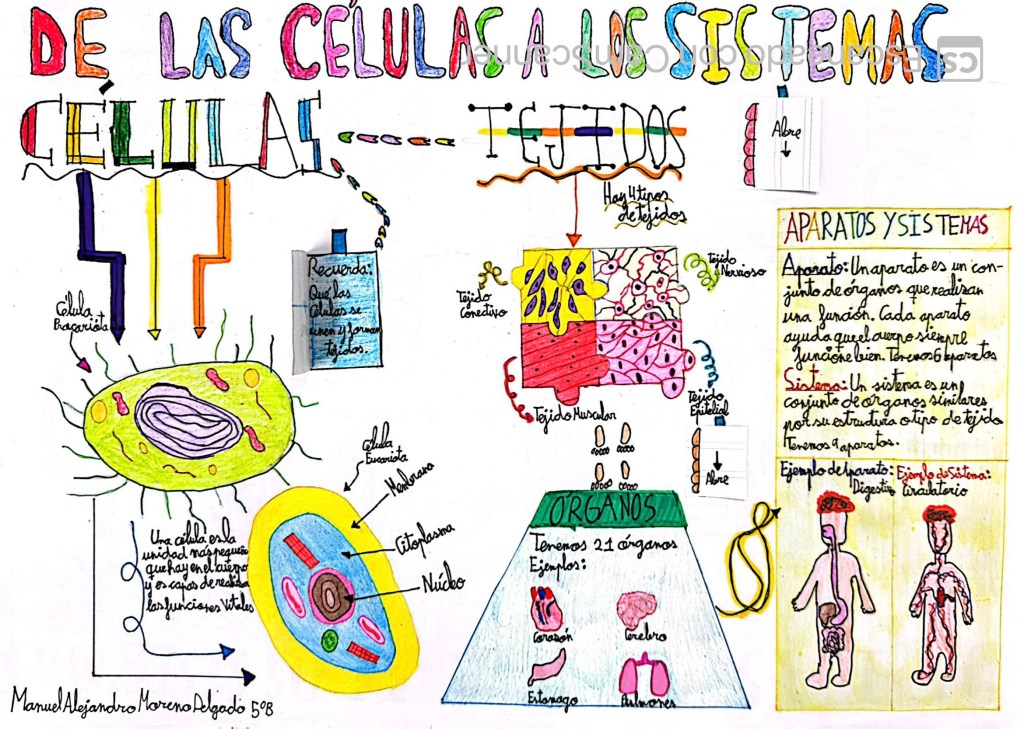 DE LAS CÉLULAS A LOS SISTEMAS
Escaneado con CamScanner
CS
CÉLULAS
TEJIDOS
Abre
Hay 4 tipos
de tejidos
Recuerda:
Que las
Células se
unen y forman
tejidos.
Célula
Procariota
Tejido
Conectivo
Tejido
Nervioso
Tejido Muscular
Tejido
Epitelial
Abre
Célula
Eucariota
Membrana
Citoplasma
Núcleo
Una célula es la
unidad más pequeña
que hay en el cuerpo
y es capas de realizar
las funciones Vitales
ÓRGANOS
Tenemos 21 órganos
Ejemplos:
Corazón
Cerebro
Estomago
Pulmones
APARATOS Y SISTEMAS
Aparato: Un aparato es un con-
junto de órganos que realizan
una función. Cada aparato
ayuda que el cuerpo siempre
funcione bien. Tenemos 6 aparatos
Sistema: Un sistema es un
conjunto de órganos similares
por su estructura o tipo de tejido
Tenemos 9 aparatos.
Ejemplo de Aparato:
Digestivo
Ejemplo de Sistema:
Circulatorio
Manuel Alejandro Moreno Delgado 5ºB